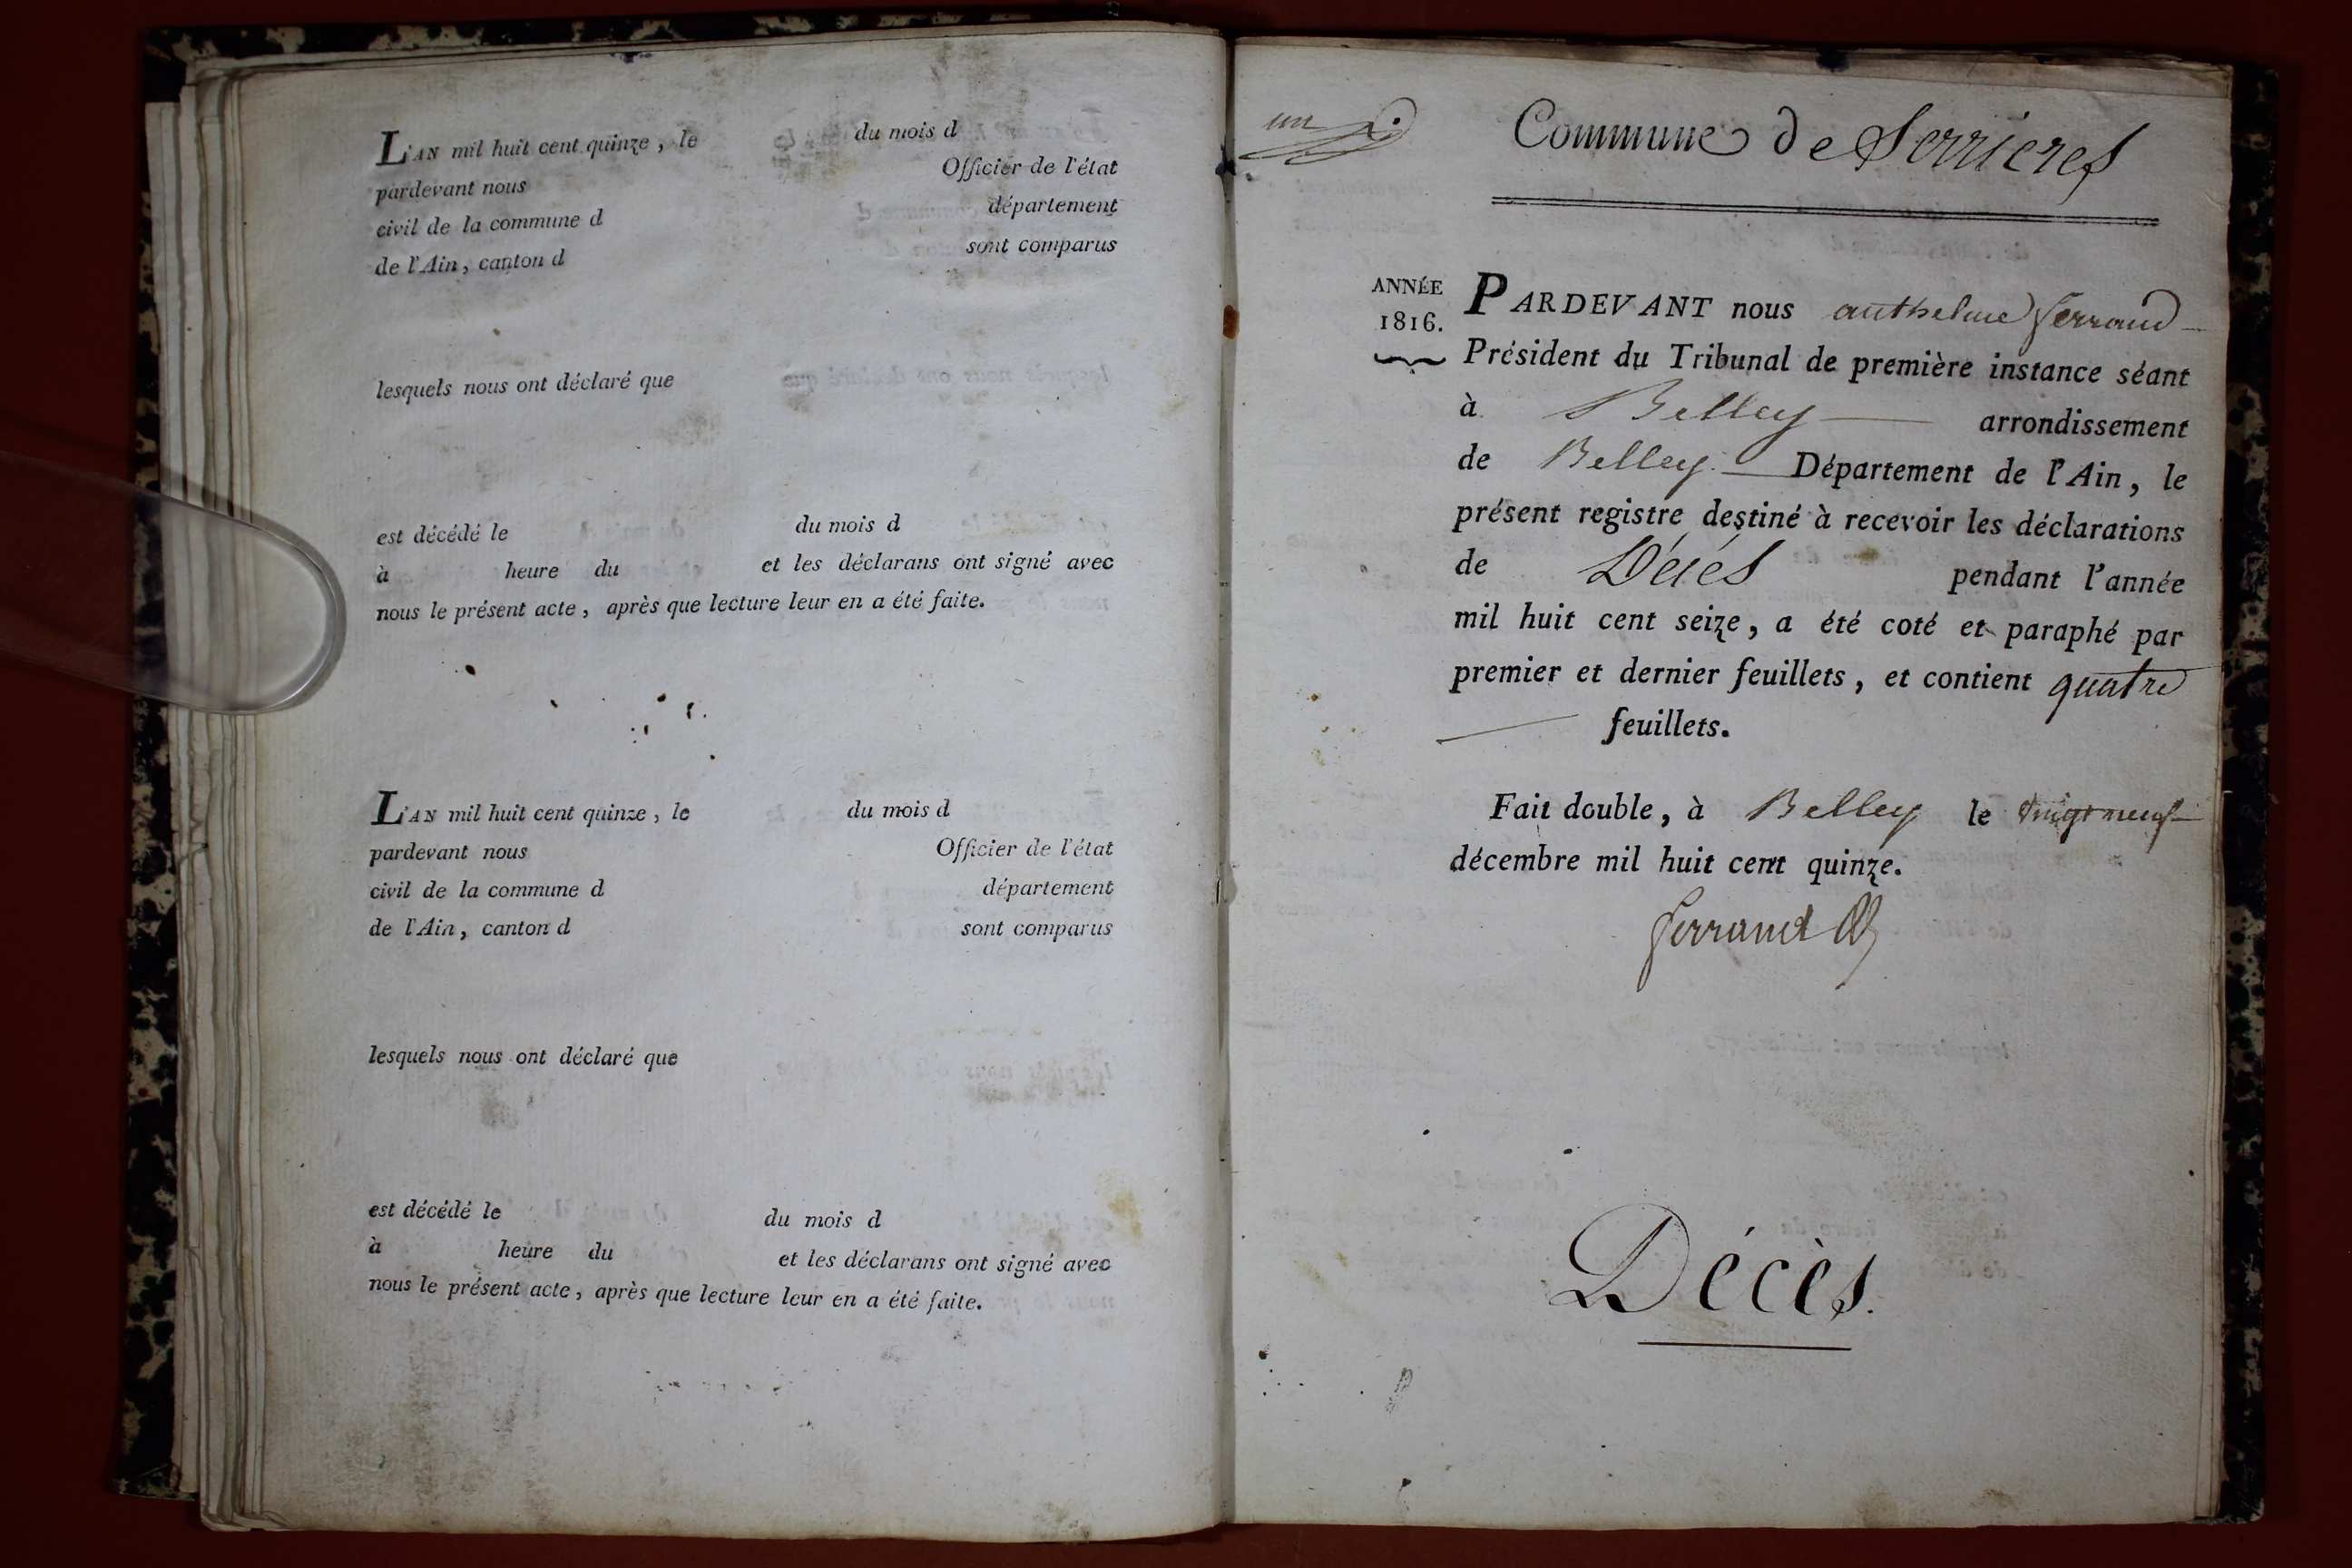 L'AN mil huit cent quinze, le du mois d
pardevant nous Officier de l'état
civil de la commune d département
de l'Ain, canton d sont comparus
lesquels nous ont déclaré que
est décédé le du mois d
à heure du et les déclarans ont signé avec
nous le présent acte, après que lecture leur en a été faite.
L'AN mil huit cent quinze, le du mois d
pardevant nous Officier de l'état
civil de la commune d département
de l'Ain, canton d sont comparus
lesquels nous ont déclaré que
est décédé le du mois d
à heure du et les déclarans ont signé avec
nous le présent acte, après que lecture leur en a été faite.
un
Commune de Serrieres
ANNÉE
1816.
PARDEVANT nous anthelme ferrand
Président du Tribunal de première instance séant
à Belley arrondissement
de Belley Département de l'Ain, le
présent registre destiné à recevoir les déclarations
de Décés pendant l'année
mil huit cent seize, a été coté et paraphé par
premier et dernier feuillets, et contient quatre
feuillets.
Fait double, à Belley le vingt neuf
décembre mil huit cent quinze.
ferrand
Décès.